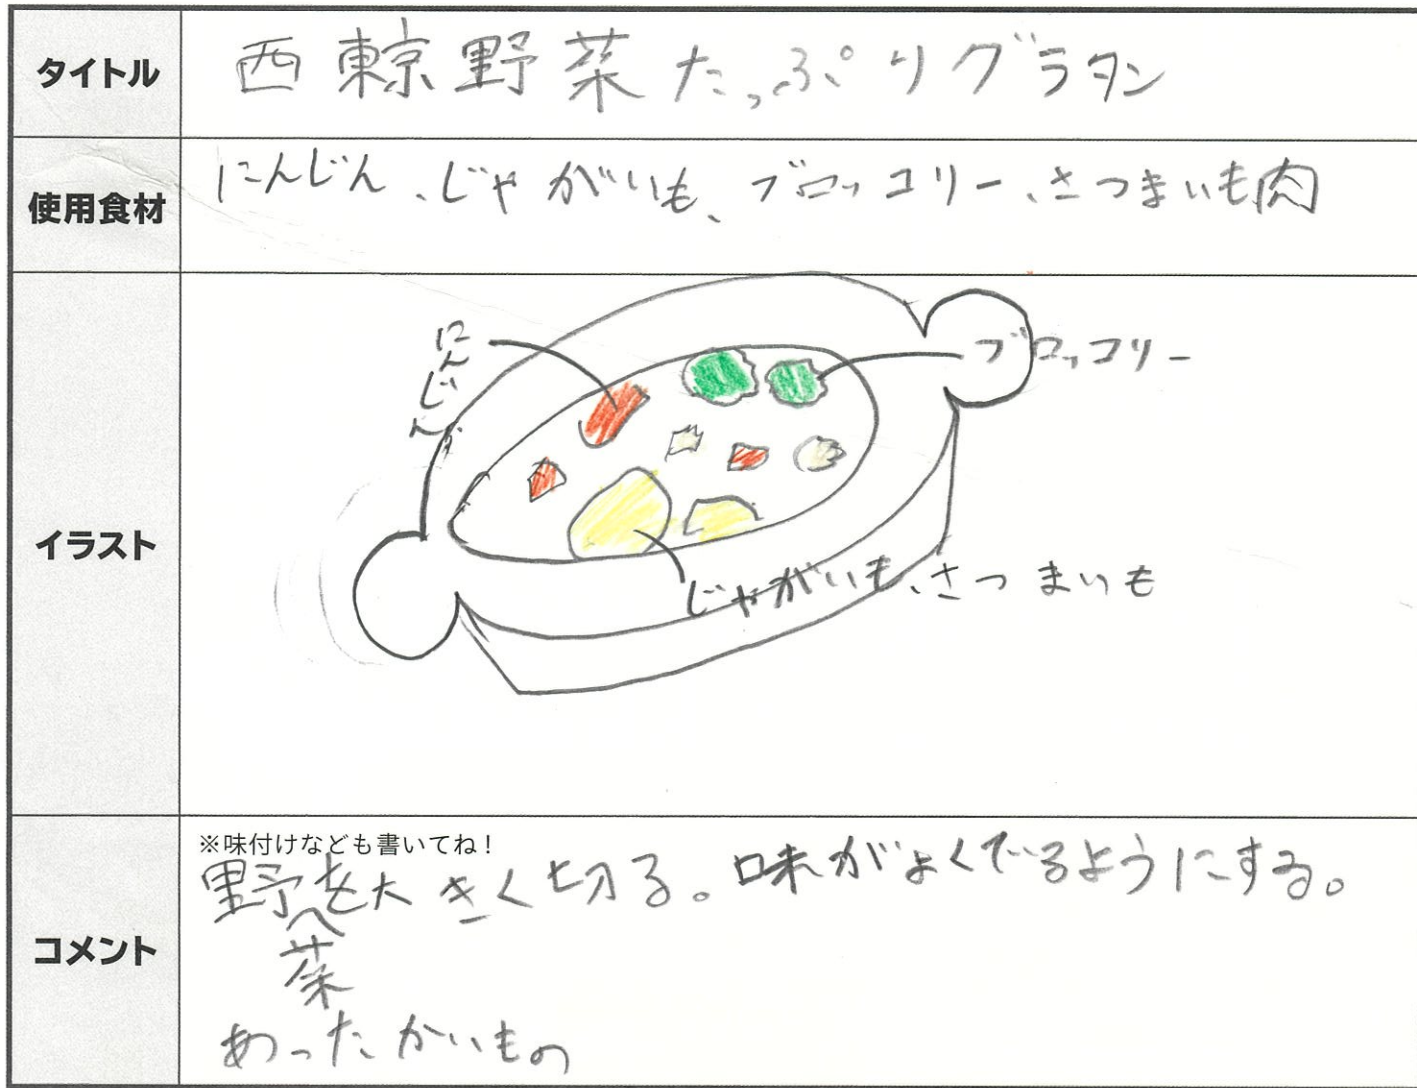 タイトル
西東京野菜たっぷりグラタン
使用食材
にんじん、じゃがいも、ブロッコリー、さつまいも肉
イラスト
にんじん
ブロッコリー
じゃがいも、さつまいも
コメント
※味付けなども書いてね！
野菜を大きく切る。味がよくでるようにする。
あったかいもの